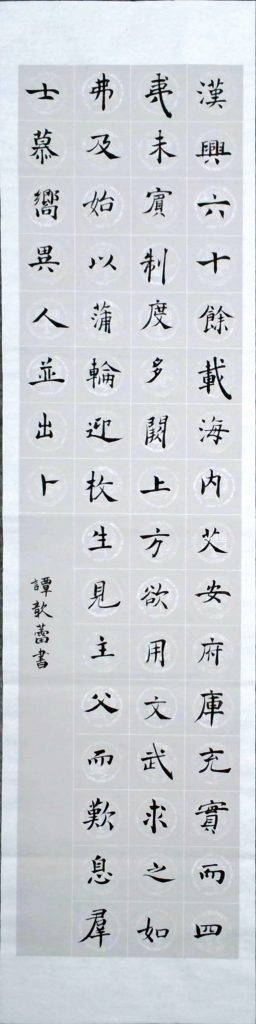 漢興六十餘載海內艾安府庫充實而四
夷未賓制度多闕上方欲用文武求之如
弗及始以蒲輪迎枚生見主父而歎息羣
士慕嚮異人並出卜
譚歆蕾書